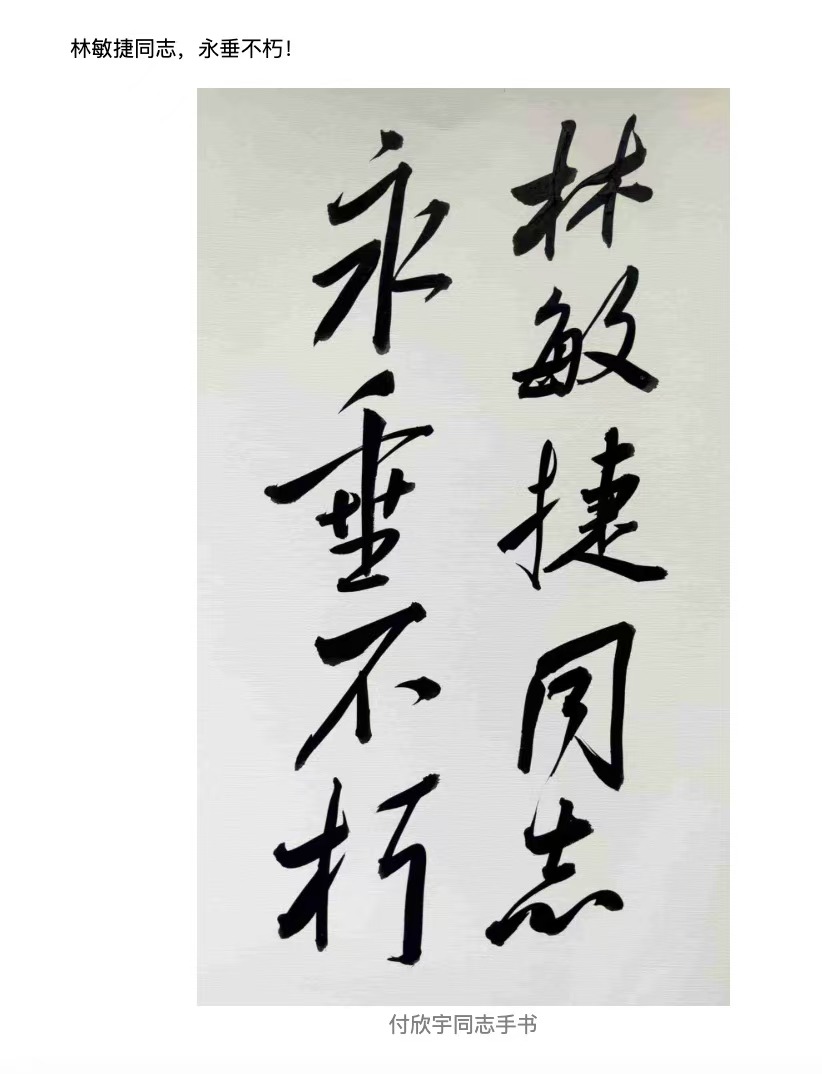 林敏捷同志，永垂不朽！
林敏捷同志
永垂不朽
付欣宇同志手书